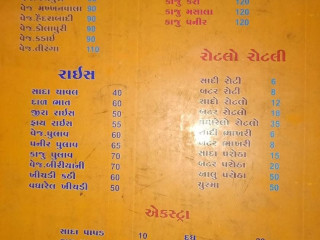 વેજ.મખ્ખનવાલા 90
વેજ.હૈદરાબાદી 90
વેજ.કોલાપુરી 90
વેજ.કડાઈ 90
વેજ.તીરંગા 110
કાજુ કરી 120
કાજુ મસાલા 120
કાજુ પનીર 120
રાઇસ
સાદા ચાવલ 40
દાળ ભાત 60
જીરા રાઇસ 50
ફ્રાય રાઇસ 55
વેજ.પુલાવ 60
પનીર પુલાવ 65
કાજુ પુલાવ 70
વેજ.બીરીયાની 70
ખીચડી કઢી 60
વઘારેલ ખીચડી 50
રોટલો રોટલી
સાદી રોટી 6
બટર રોટી 8
સાદો રોટલો 12
બટર રોટલો 18
રોટલો 30
ભાખરી 6
બટર ભાખરી 8
સાદા પરોઠા 15
બટર પરોઠા 20
આલુ પરોઠા 50
ચુરમા 50
એકસ્ટ્રા
સાદા પાપડ 10
દહીં 30